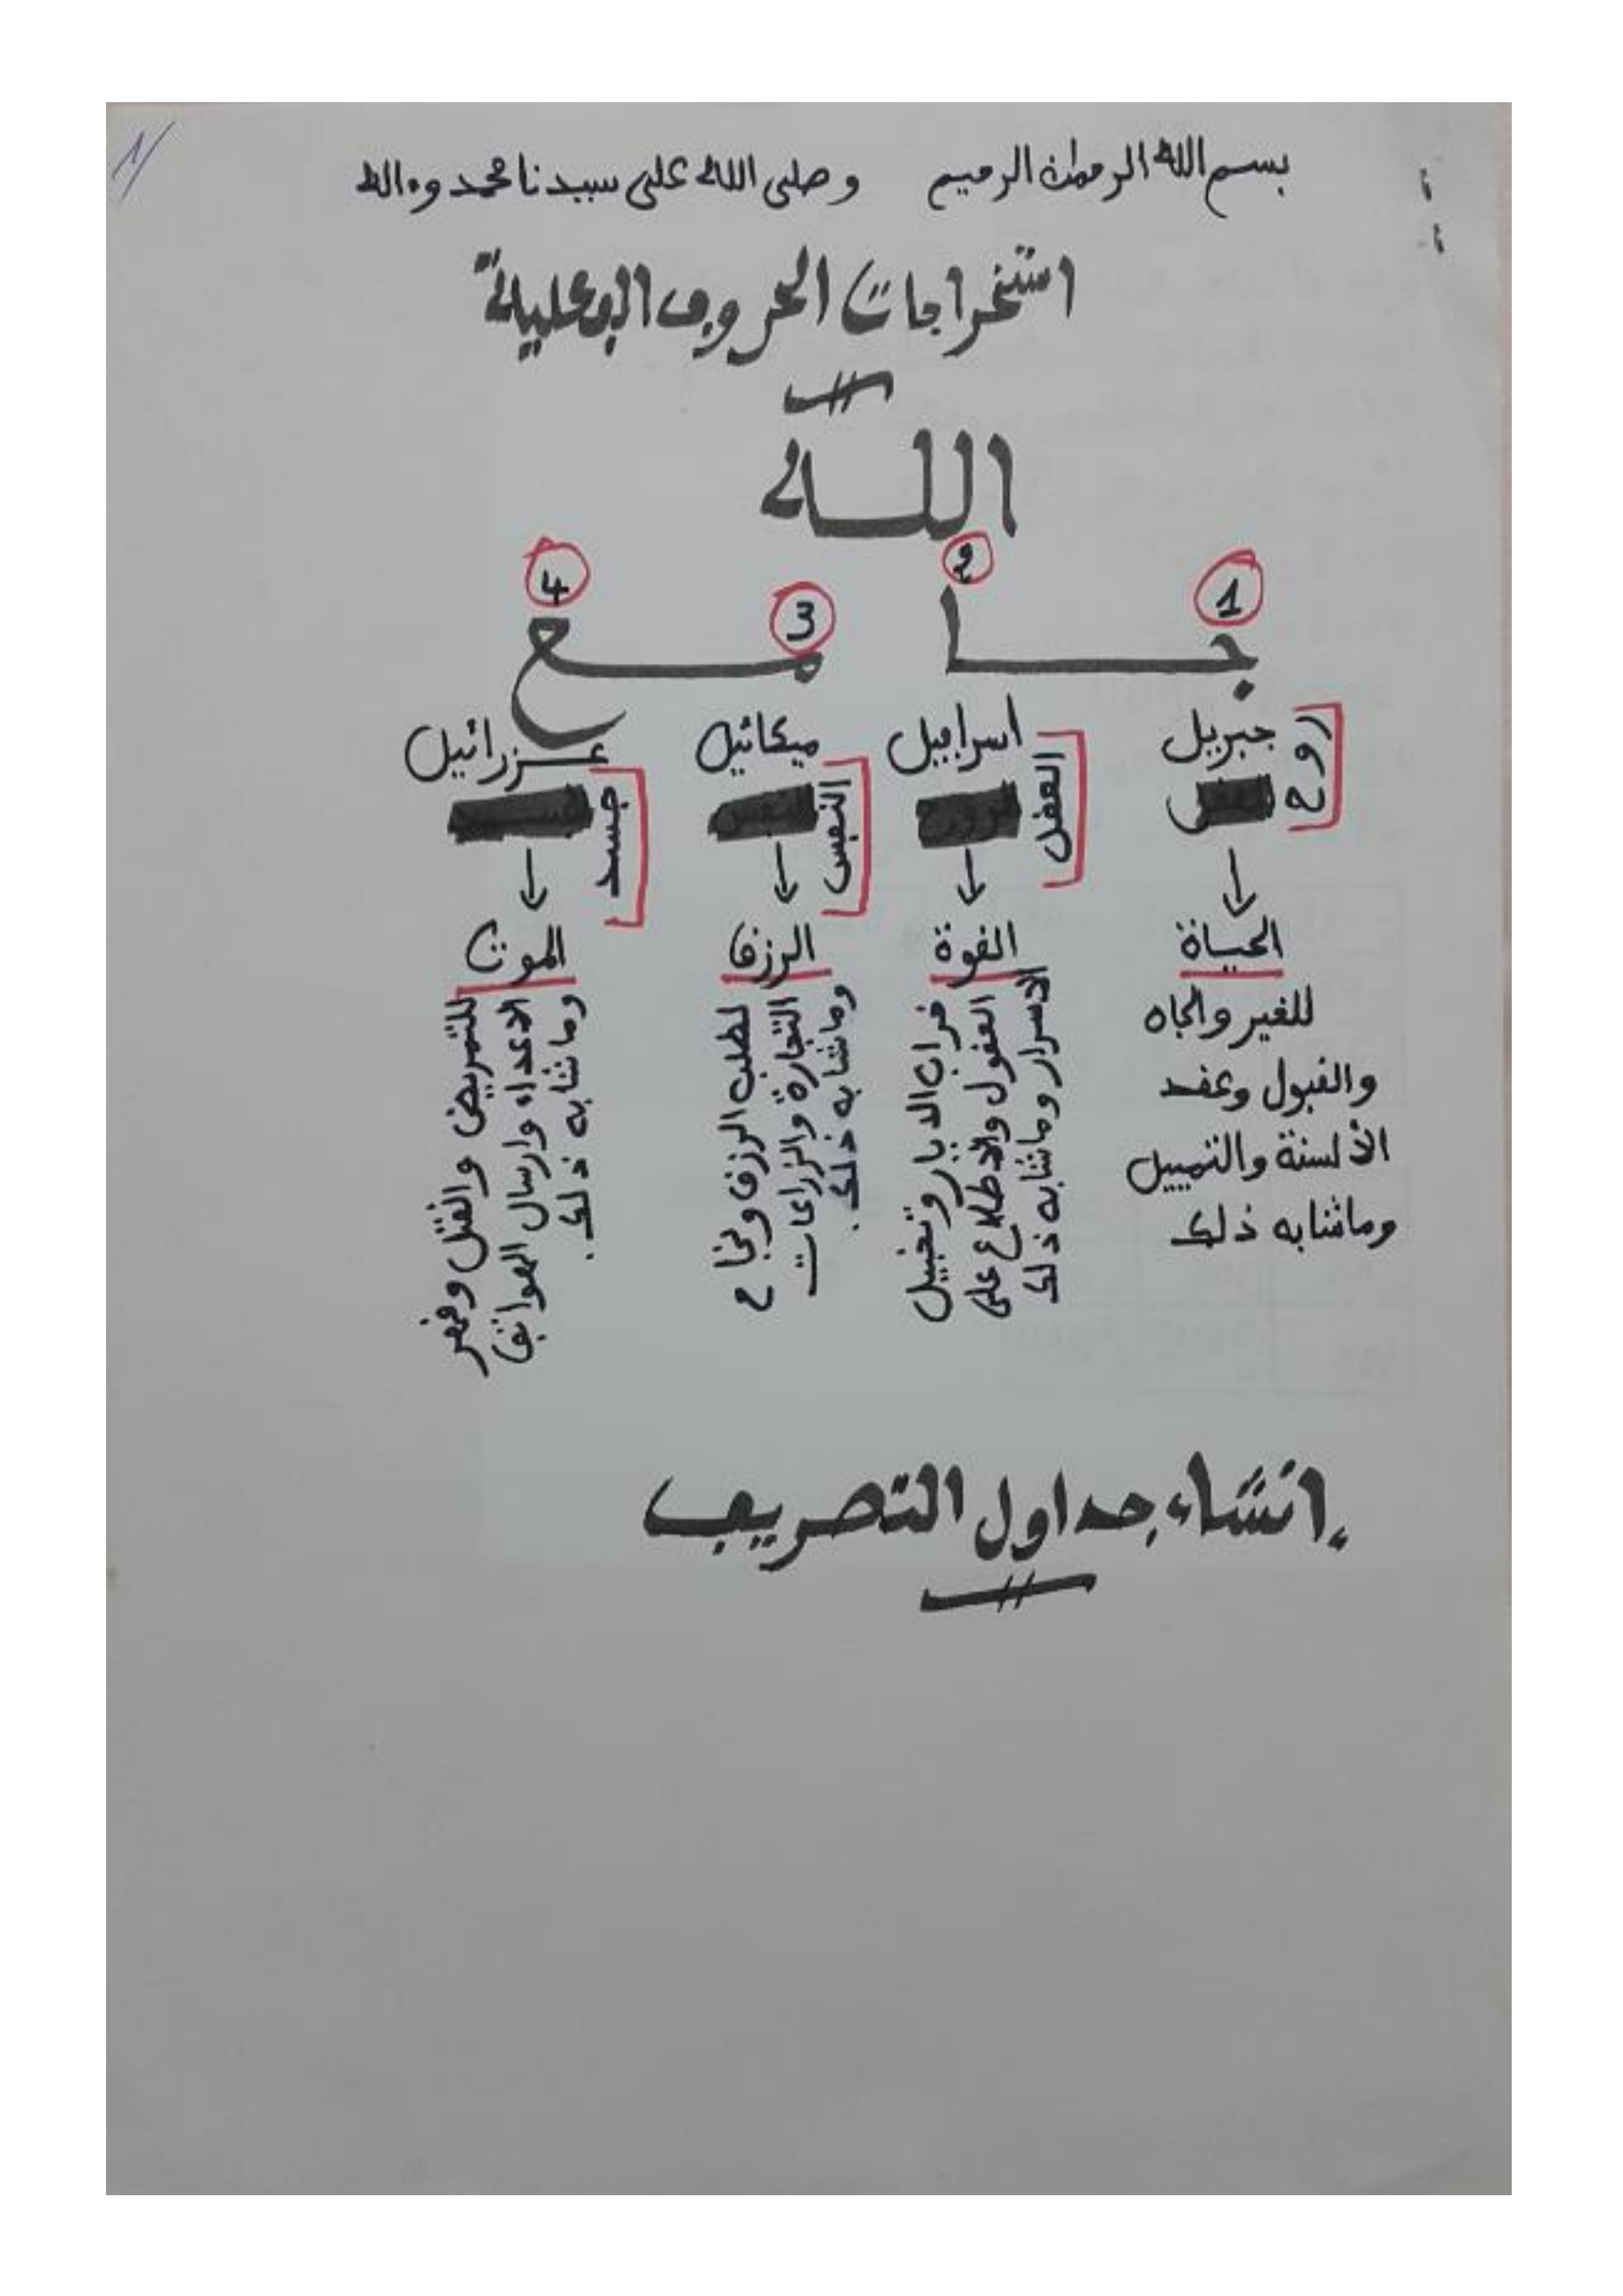 بسم الله الرحمان الرحيم وصلى الله على سيدنا محمد وءاله
استخراجات الحروف الفعلية
الله
1 2 3 4
جامع
جبريل
روح
الحياة
للغير والجاه
والقبول وعقد
الألسنة والتمييل
وماشابه ذلك
اسرافيل
العقل
القوة
الديار وتخبيل
العقول والاطلاع على
الاسرار وماشابه ذلك
ميكائيل
النفس
الرزق
لطلب الرزق ونجاح
التجارة والزراعات
وماشابه ذلك.
عزرائيل
جسد
الموت
للتمريض والقتل وقهر
الاعداء وارسال الهواتف
وماشابه ذلك.
إنشاء جداول التصريف